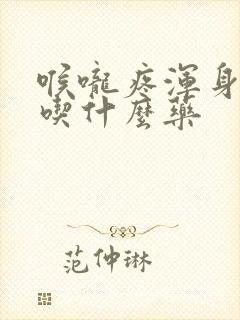 喉嚨疼渾身
喫什麼藥
范仲琳